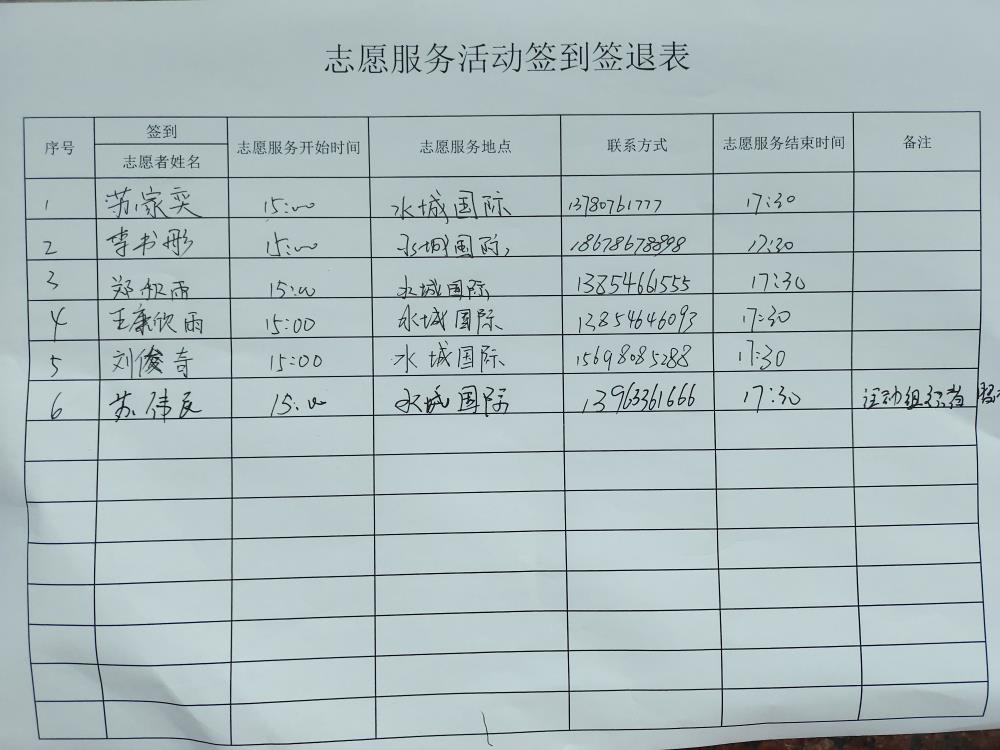 志愿服务活动签到签退表
序号 签到 志愿者姓名 志愿服务开始时间 志愿服务地点 联系方式 志愿服务结束时间 备注
1 苏家奕 15:00 水城国际 13780761777 17:30
2 李书彤 15:00 水城国际 18678678898 17:30
3 郑欣雨 15:00 水城国际 13854661555 17:30
4 王康欣雨 15:00 水城国际 13854646093 17:30
5 刘俊奇 15:00 水城国际 15698085288 17:30
6 苏伟 15:00 水城国际 13963361666 17:30 活动组织者